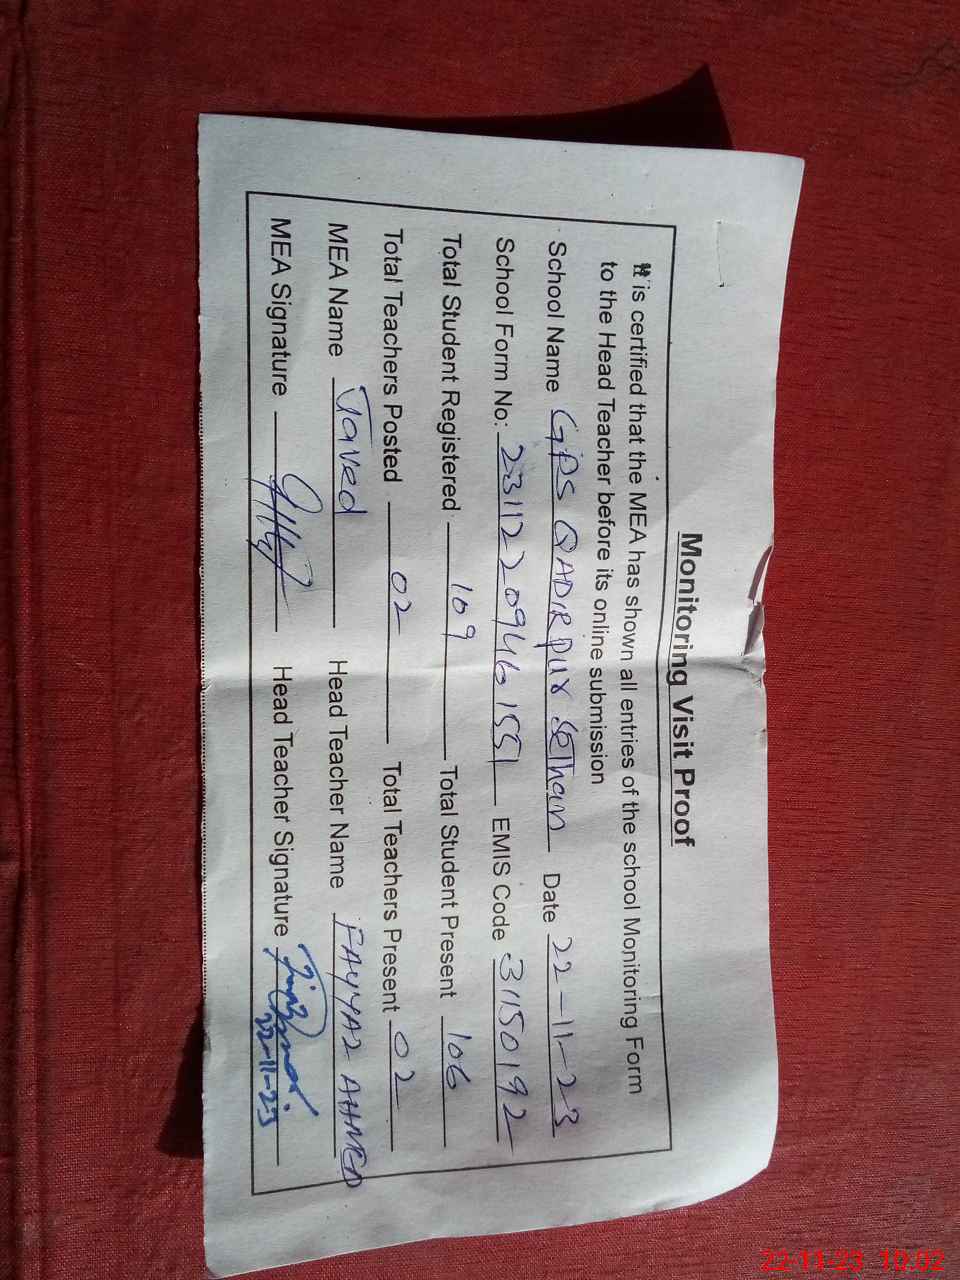 Monitoring Visit Proof
It is certified that the MEA has shown all entries of the school Monitoring Form
to the Head Teacher before its online submission
School Name GPS QADIR pur Sethan Date 22-11-23
School Form No: 23112209446155 EMIS Code 31150192
Total Student Registered 109 Total Student Present 106
Total Teachers Posted 02 Total Teachers Present 02
MEA Name Javed Head Teacher Name FAYYAZ AHMED
MEA Signature Head Teacher Signature
22-11-23
22-11-23 10:02